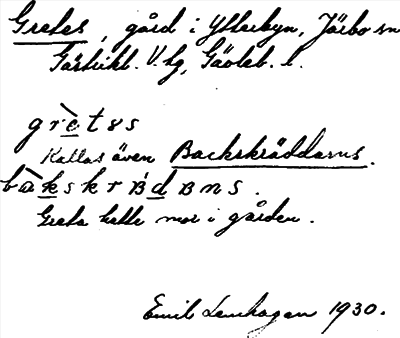 Gretes, gård i Ytterbyn, Järbo sn
Gästrikl. V. hg, Gävleb. l.
grètɘs
Kallas även Backskräddarns.
bàkskrɐ́dɐns.
Greta hette mor i gården.
Emil Lenhagen 1930.